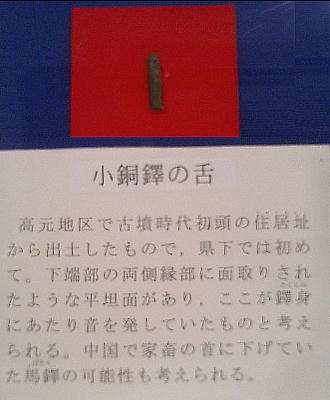 小銅鐸の舌
高元地区で古墳時代初頭の住居址
から出土したもので，県下では初め
て。下端部の両側縁部に面取りされ
たような平坦面があり，ここが鐸身
にあたり音を発していたものと考え
られる。中国で家畜の首に下げてい
た馬鐸の可能性も考えられる。